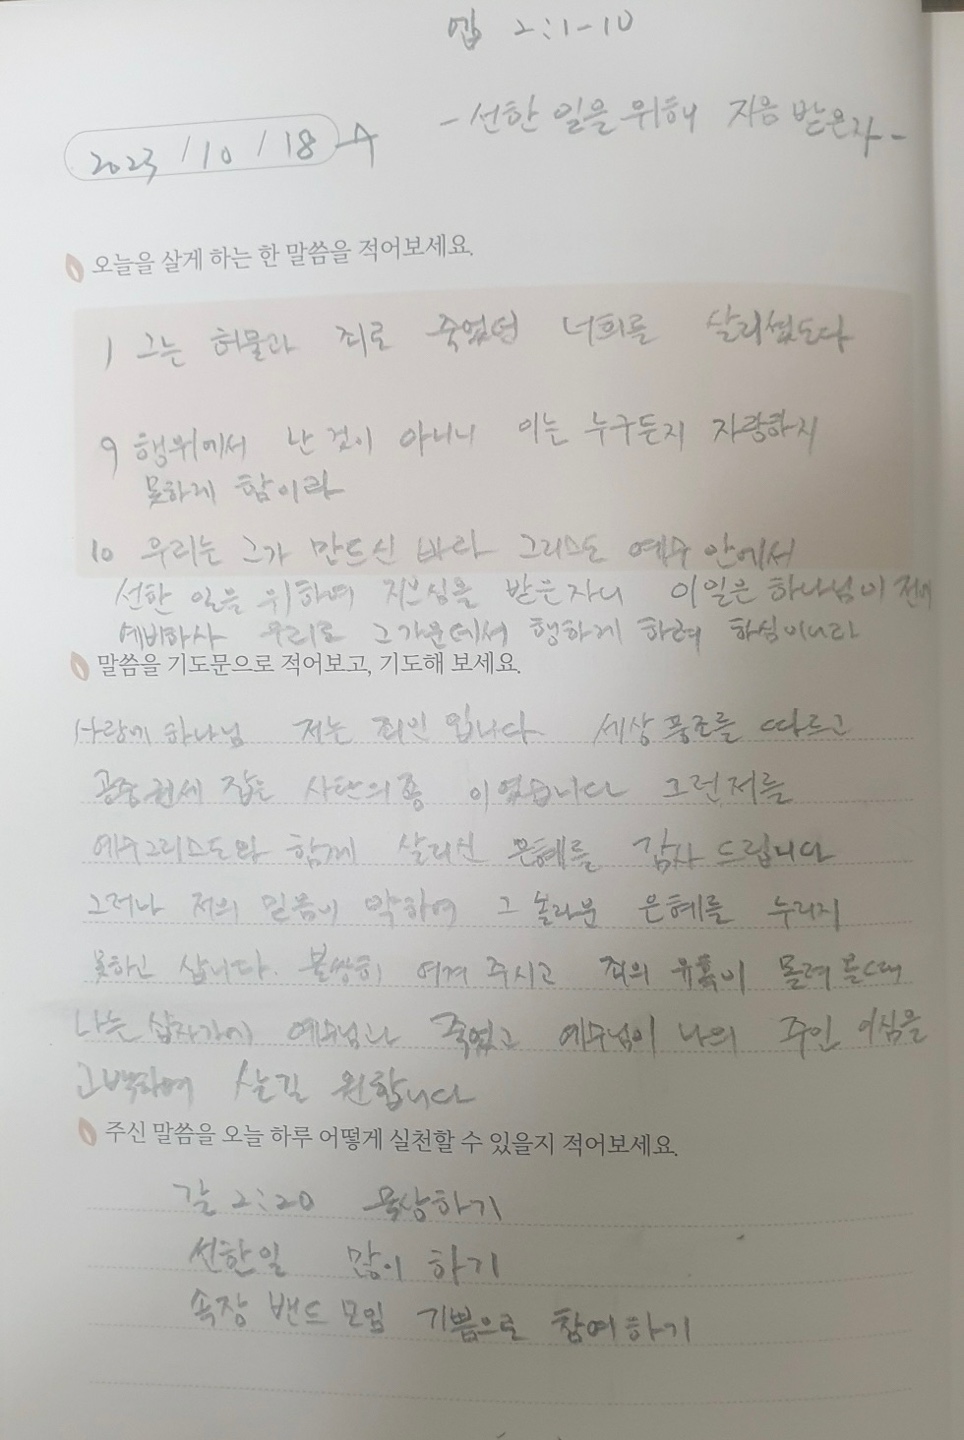 엡 2:1-10
-선한 일을 위해 지음 받은자-
2023/10/18 수
오늘을 살게 하는 한 말씀을 적어보세요.
1 그는 허물과 죄로 죽었던 너희를 살리셨도다
9 행위에서 난 것이 아니니 이는 누구든지 자랑하지
못하게 함이라
10 우리는 그가 만드신 바라 그리스도 예수 안에서
선한 일을 위하여 지으심을 받은자니 이일은 하나님이 전에
예비하사 우리로 그가운데서 행하게 하려 하심이니라
말씀을 기도문으로 적어보고, 기도해 보세요.
사랑에 하나님 저는 죄인 입니다 세상 풍조를 따르고
공중권세 잡은 사탄의종 이었습니다 그런저를
예수그리스도와 함께 살리신 은혜를 감사 드립니다
그러나 저의 믿음이 약하여 그 놀라운 은혜를 누리지
못하고 삽니다. 불쌍히 여겨 주시고 죄의 유혹이 몰려 올때
나는 십자가에 예수님과 죽었고 예수님이 나의 주인 이심을
고백하며 살길 원합니다
주신 말씀을 오늘 하루 어떻게 실천할 수 있을지 적어보세요.
갈 2:20 묵상하기
선한일 많이 하기
속장 밴드 모임 기쁨으로 참여하기